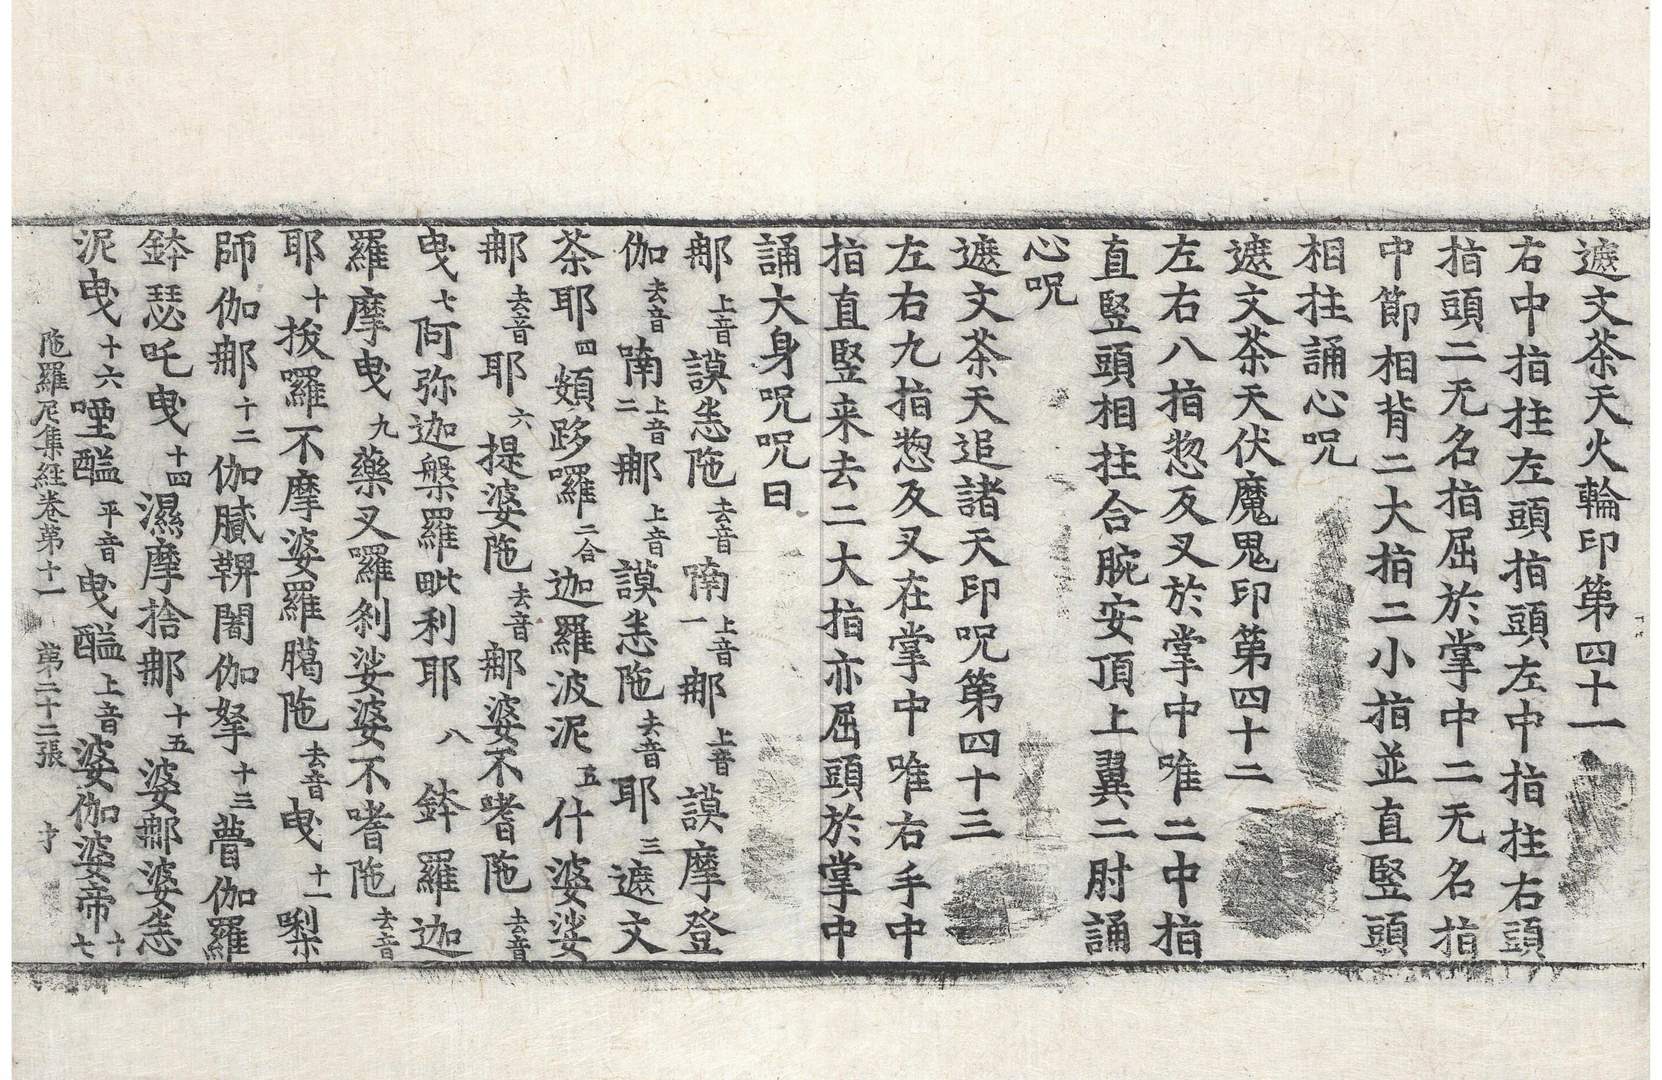 遮文茶天火輪印第四十一
右中指拄左頭指頭左中指拄右頭
指頭二无名指屈於掌中二无名指
中節相背二大指二小指並直竪頭
相拄誦心呪
遮文茶天伏魔鬼印第四十二
左右八指惣反叉於掌中唯二中指
直竪頭相拄合腕安頂上翼二肘誦
心呪
遮文茶天追諸天印呪第四十三
左右九指惣反叉在掌中唯右手中
指直竪来去二大指亦屈頭於掌中
誦大身呪呪曰
那上音謨恙陁去音喃上音一那上音謨摩登
伽去音喃上音二那上音謨恙陁去音耶三遮文
茶耶四頞跢囉二合迦羅波泥五什婆娑
那去音耶六提婆陁去音那婆不嗜陁去音
曳七阿弥迦槃羅毗利耶八鉢羅迦
羅摩曳九藥叉囉刹娑婆不嗜陁去音
耶十拔囉不摩婆羅臈陁去音曳十一㗚
師伽那十二伽膩鞞闍伽拏十三瞢伽羅
鉢瑟吒曳十四濕摩捨那十五婆那婆恙
泥曳十六堙醯平音曳醯上音婆伽婆帝十七
陁羅尼集經卷第十一 第二十二張 才